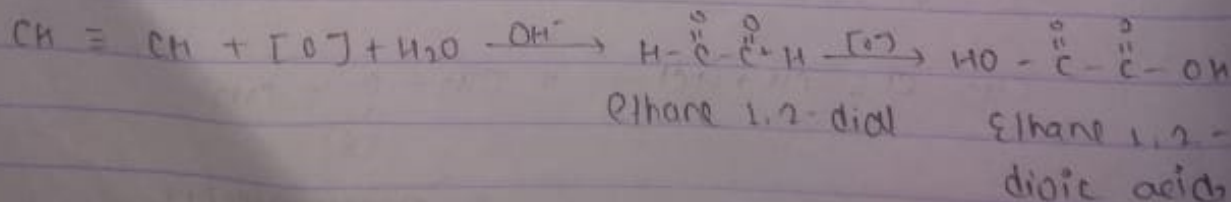 CH ≡ CH + [O] + H₂O —OH⁻→ H-C(=O)-C(=O)-H —[O]→ HO-C(=O)-C(=O)-OH
ethane 1,2-dial Ethane 1,2-
dioic acid